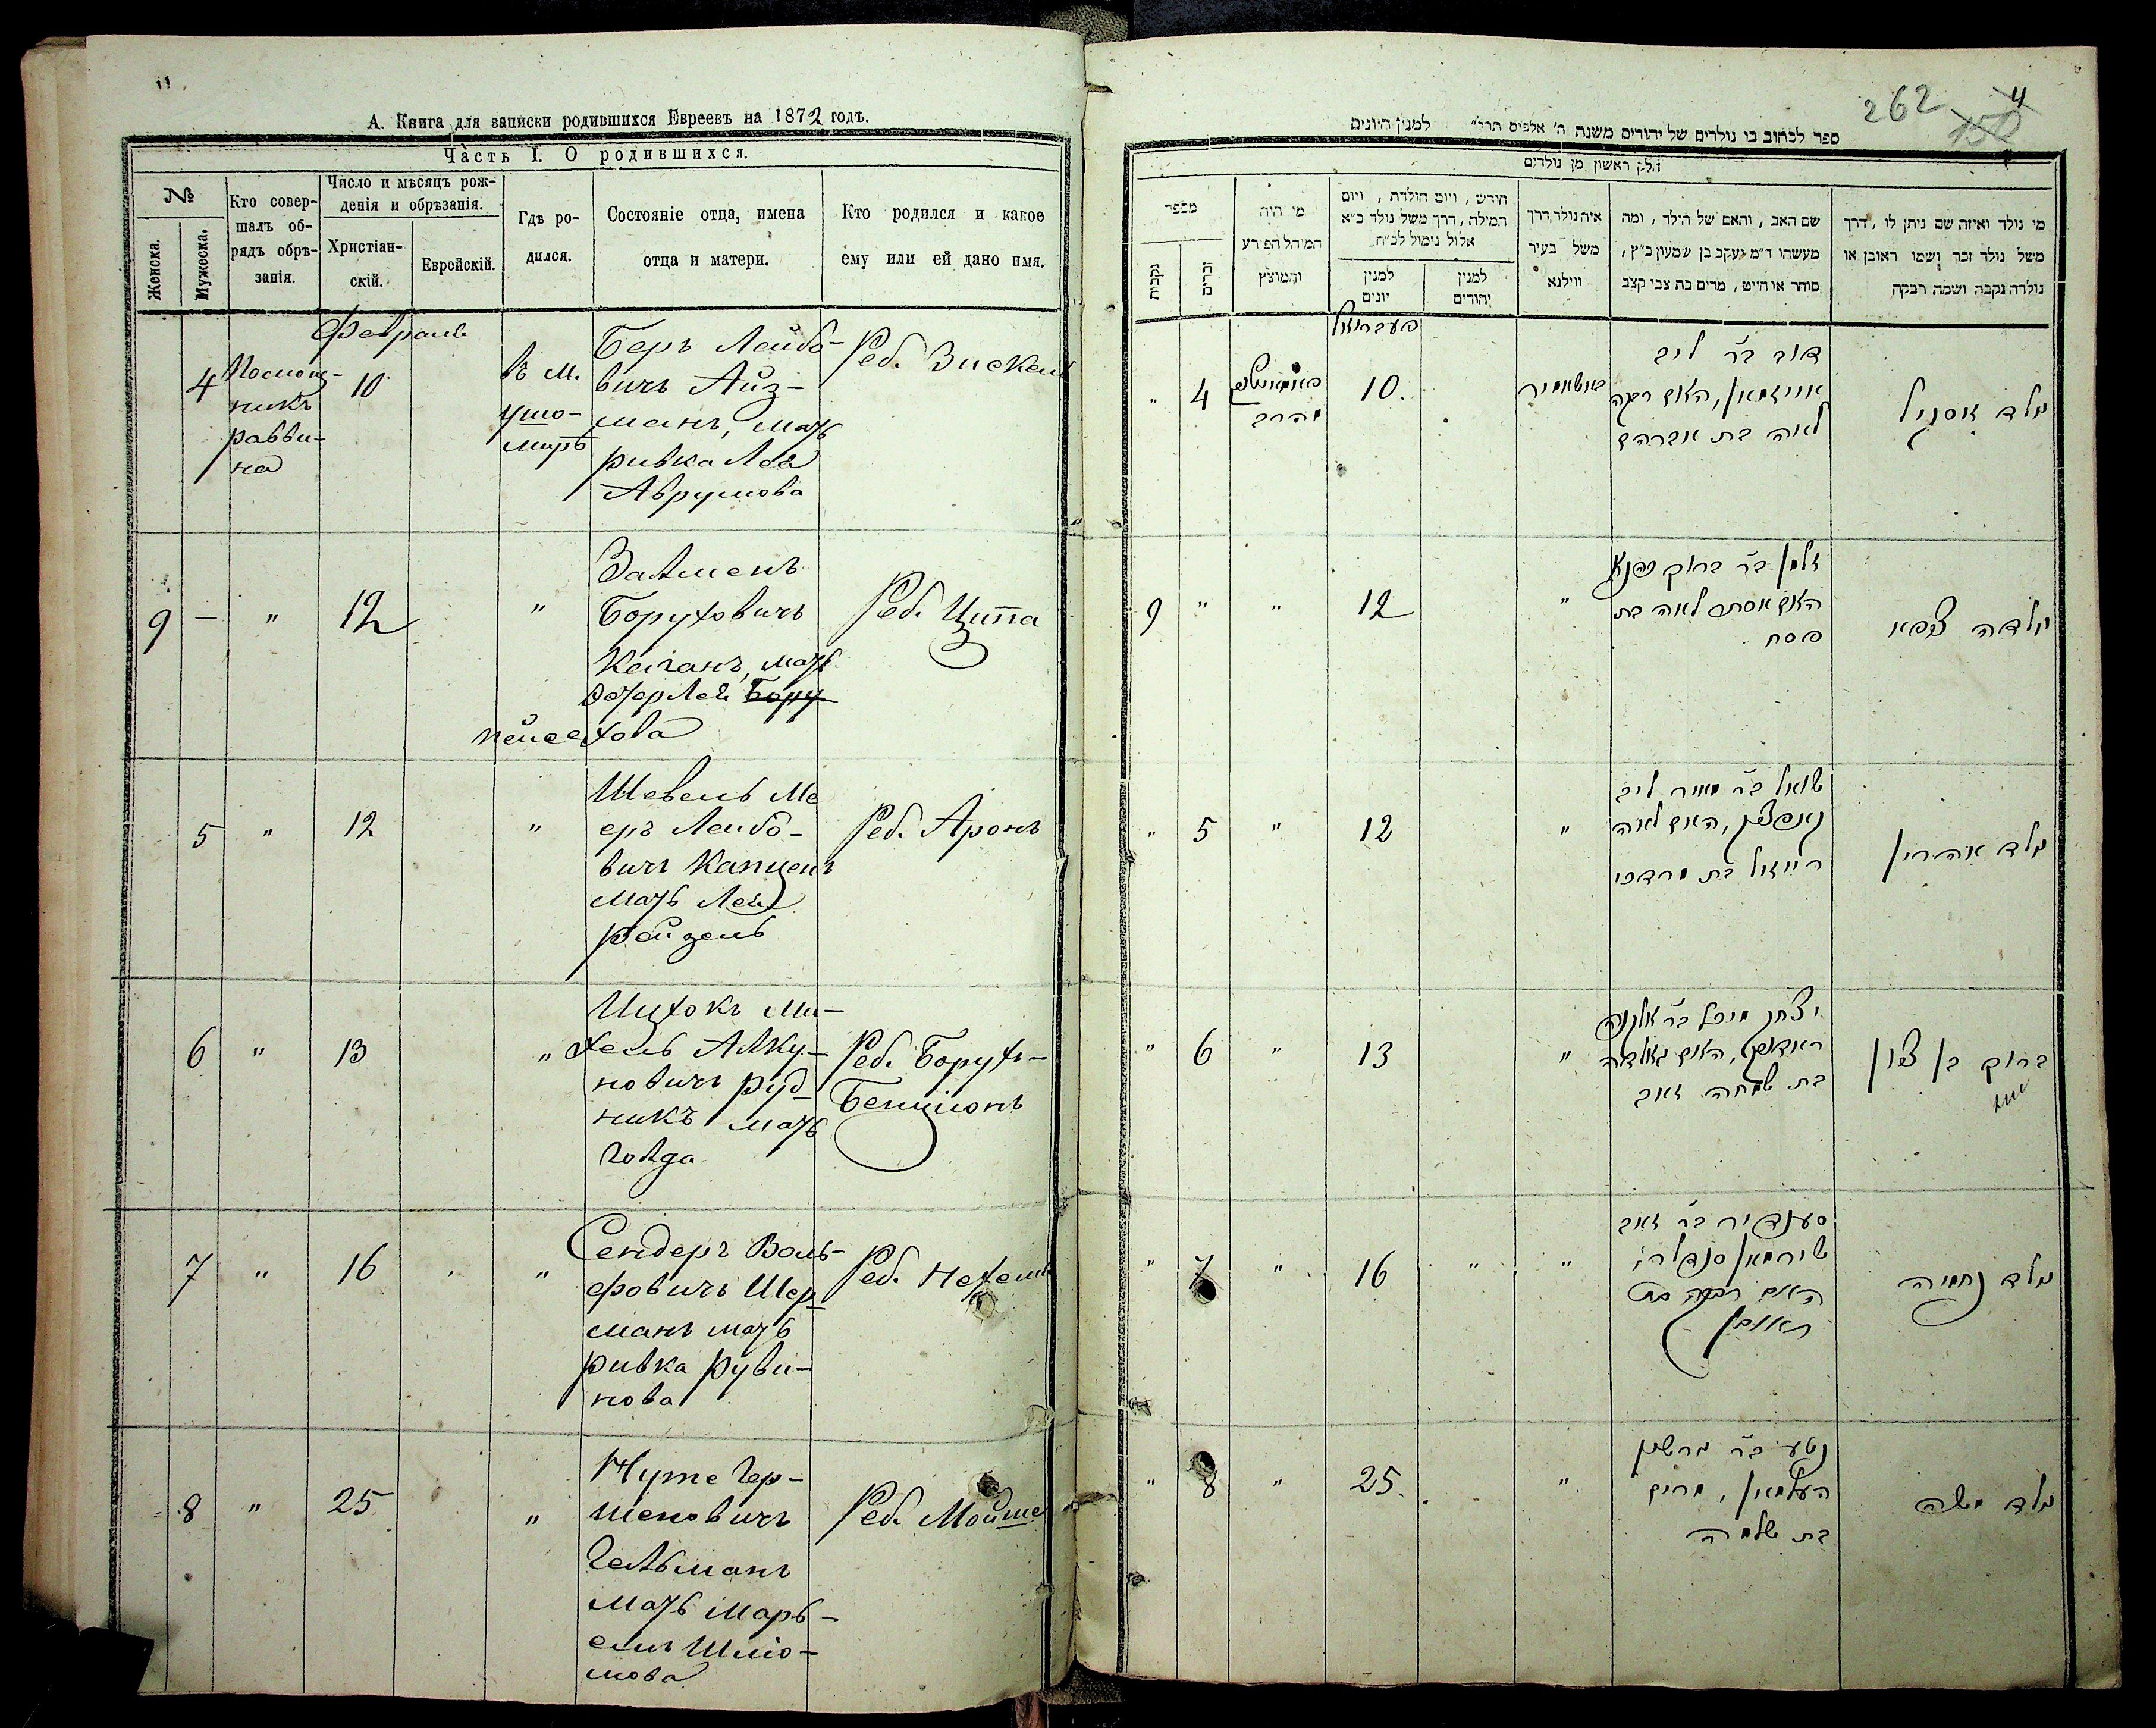 А. Книга для записки родившихся Евреевъ на 1872 годъ.
Часть I. О родившихся.
№
Женска.
Мужеска.
Кто совер-
шалъ об-
рядъ обрѣ-
занія.
Число и мѣсяцъ рож-
денія и обрѣзанія.
Христіан-
скій.
Еврейскій.
Гдѣ ро-
дился.
Состояніе отца, имена
отца и матери.
Кто родился и какое
ему или ей дано имя.
Февраль
4
Помощ-
никъ
равви-
на
10
въ м.
Ушо-
миръ
Беръ Лейбо-
вичъ Айз-
манъ, мать
Ривка Лея
Аврумова
Реб. Зискель
9
—
"
12
"
Залменъ
Боруховичъ
Каганъ, мать
Эстер Лея Бору
пейсехова
Реб. Ципа
5
"
12
"
Шевель Ме
еръ Лейбо-
вичъ Капценъ
мать Лея
Рейзель
Реб. Аронъ
6
"
13
"
Ицхокъ Ми-
хель Алку-
новичъ Руд-
никъ мать
Голда
Реб. Борухъ-
Бенционъ
7
"
16
"
Сендеръ Воль-
фовичъ Шер-
манъ мать
Ривка Руви-
нова
Реб. Нехемія
8
"
25
"
Нуте Гер-
шеновичъ
Гельманъ
мать Марь-
емъ Шлио-
мова
Реб. Мойше
262
ספר לכתוב בו נולדים של יהודים משנת ה' אלפים תרל״ למנין היונים
חלק ראשון מן נולדים
מספר
נקבות
זכרים
מי היה
המוהל הפורע
והמוצץ
חודש, ויום הולדת, ויום
המילה, דרך משל נולד כ״א
אלול נימול לכ״ח
למנין
יונים
למנין
יהודים
איה נולד, דרך
משל בעיר
ווילנא
שם האב, והאם של הילד, ומה
מעשהו ד״מ יעקב בן שמעון כ״ץ,
סוחר או חייט, מרים בת צבי קצב
מי נולד ואיזה שם ניתן לו, דרך
משל נולד זכר ושמו ראובן או
נולדה נקבה ושמה רבקה
"
4
10.
דוב ב״ר ליב
אייזמאן, האם רבקה
לאה בת אברהם
ילד זוסקיל
9
"
"
12
"
זלמן ב״ר ברוך
האם אסתר לאה בת
פסח
ילדה ציפא
"
5
"
12
"
שואל ב״ר מאיר ליב
קאפצין, האם לאה
רייזול בת מרדכי
ילד אהרון
"
6
"
13
"
יצחק מיכל ב״ר אלקנה
רודניק, האם גאלדה
בת שמחה זאב
ברוך בן ציון
"
7
"
16
"
"
סענדיר ב״ר זאב
שירמאן סנדלר,
האם רבקה בת
ראובן
ילד נחמיה
"
8
"
25.
"
נטע ב״ר גרשון
העלמאן, מרים
בת שלמה
ילד משה